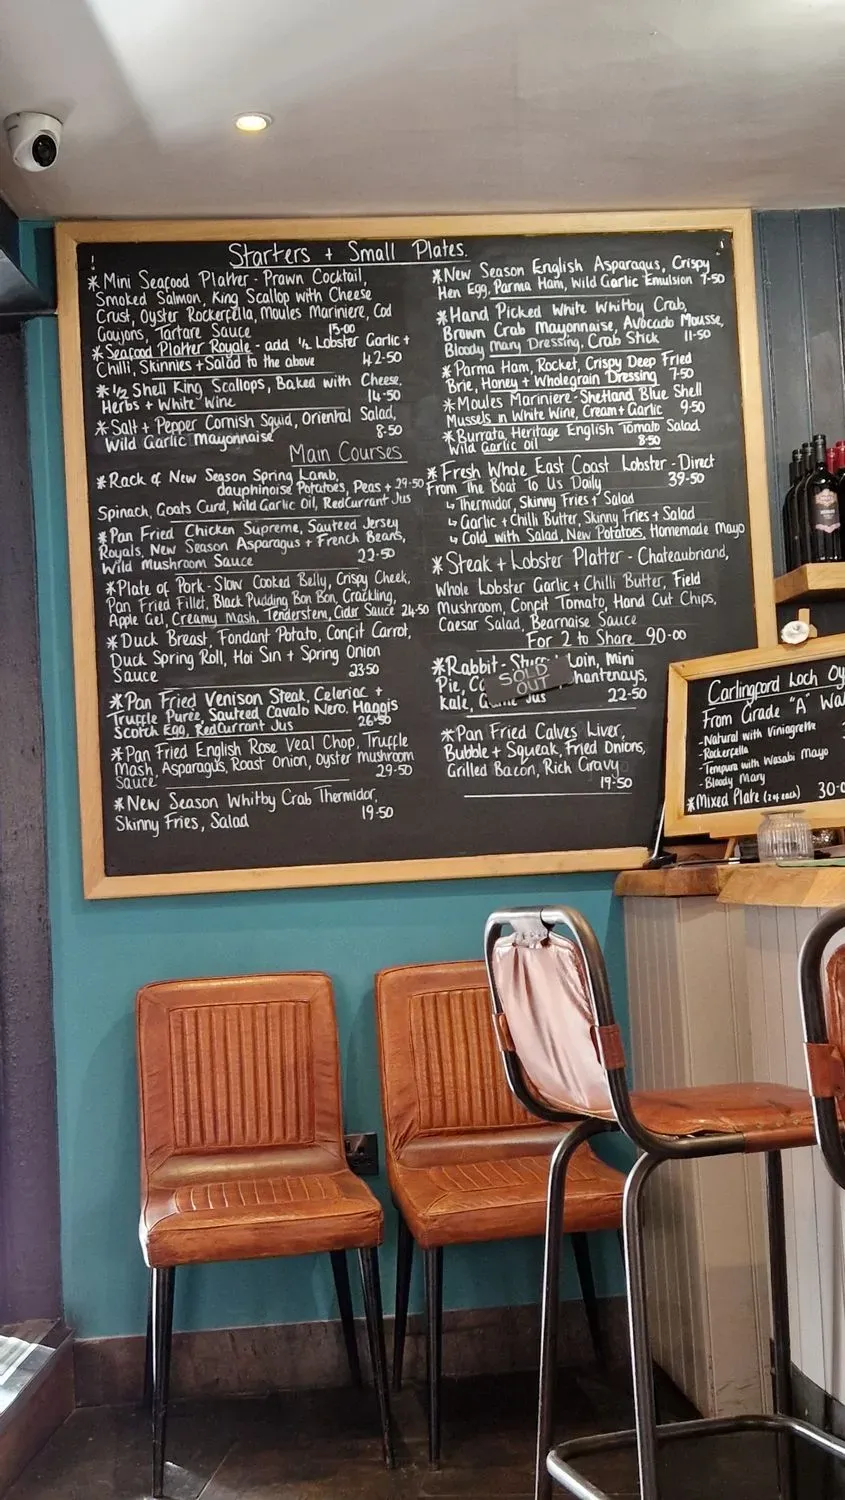 Starters + Small Plates.
* Mini Seafood Platter - Prawn Cocktail,
Smoked Salmon, King Scallop with Cheese
Crust, Oyster Rockerfella, Moules Mariniere, Cod
Goujons, Tartare Sauce 15-00
* Seafood Platter Royale - add 1/2 Lobster Garlic +
Chilli, Skinnies + Salad to the above 42-50
* 1/2 Shell King Scallops, Baked with Cheese,
Herbs + White Wine 14-50
* Salt + Pepper Cornish Squid, Oriental Salad, 8-50
Wild Garlic Mayonnaise
* New Season English Asparagus, Crispy
Hen Egg, Parma Ham, Wild Garlic Emulsion 7-50
* Hand Picked White Whitby Crab,
Brown Crab Mayonnaise, Avocado Mousse,
Bloody Mary Dressing, Crab Stick 11-50
* Parma Ham, Rocket, Crispy Deep Fried
Brie, Honey + Wholegrain Dressing 7-50
* Moules Mariniere - Shetland Blue Shell
Mussels in White Wine, Cream + Garlic 9-50
* Burrata, Heritage English Tomato Salad
Wild Garlic Oil 8-50
Main Courses
* Rack of New Season Spring Lamb,
dauphinoise Potatoes, Peas + 29-50
Spinach, Goats Curd, Wild Garlic Oil, RedCurrant Jus
* Pan Fried Chicken Supreme, Sauteed Jersey
Royals, New Season Asparagus + French Beans,
Wild Mushroom Sauce 22-50
* Plate of Pork - Slow Cooked Belly, Crispy Cheek,
Pan Fried Fillet, Black Pudding Bon Bon, Crackling,
Apple Gel, Creamy Mash, Tenderstem, Cider Sauce 24-50
* Duck Breast, Fondant Potato, Confit Carrot,
Duck Spring Roll, Hoi Sin + Spring Onion
Sauce 23-50
* Pan Fried Venison Steak, Celeriac +
Truffle Puree, Sauteed Cavalo Nero, Haggis
Scotch Egg, RedCurrant Jus 26-50
* Pan Fried English Rose Veal Chop, Truffle
Mash, Asparagus, Roast Onion, Oyster mushroom
Sauce 29-50
* New Season Whitby Crab Thermidor,
Skinny Fries, Salad 19-50
* Fresh Whole East Coast Lobster - Direct
From The Boat To Us Daily 39-50
↳ Thermidor, Skinny Fries + Salad
↳ Garlic + Chilli Butter, Skinny Fries + Salad
↳ Cold with Salad, New Potatoes, Homemade Mayo
* Steak + Lobster Platter - Chateaubriand,
Whole Lobster Garlic + Chilli Butter, Field
Mushroom, Confit Tomato, Hand Cut Chips,
Caesar Salad, Bearnaise Sauce
For 2 to Share 90-00
* Rabbit - Loin, Mini
Pie, hantenays,
Kale, Jus 22-50
SOLD
OUT
* Pan Fried Calves Liver,
Bubble + Squeak, Fried Onions,
Grilled Bacon, Rich Gravy
19-50
Carlingford Loch Oy
From Grade "A" Wa
- Natural with Viniagrette
- Rockerfella
- Tempura with Wasabi Mayo
- Bloody Mary
* Mixed Plate (2 of each) 30-0